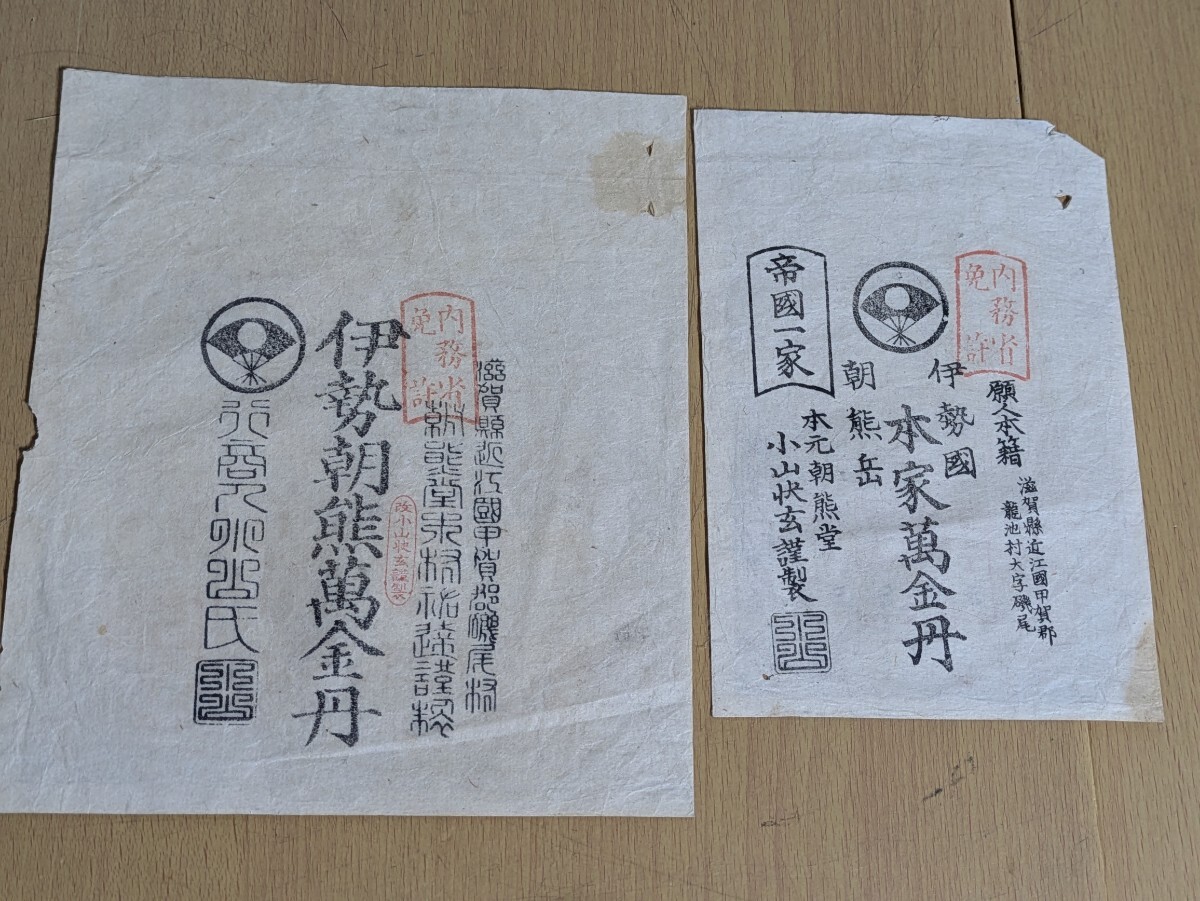 滋賀縣近江國甲賀郡磯尾村
朝熊堂
内務省
免許
伊勢朝熊萬金丹
小山状玄謹製
行商人
氏
内務省
免許
願人本籍
滋賀縣近江國甲賀郡
龍池村大字磯尾
伊勢國
本家萬金丹
朝熊岳
本元朝熊堂
小山状玄謹製
帝國一家